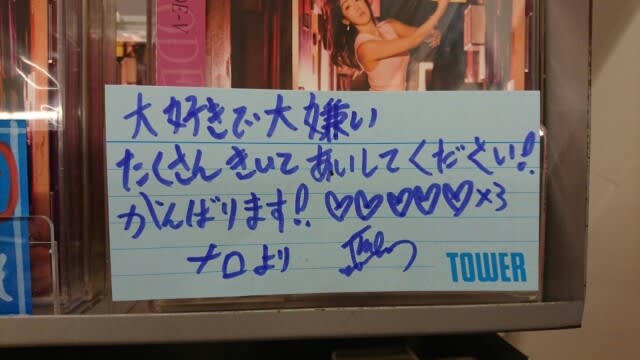 大好きで大嫌い
たくさんきいてあいしてください!!
がんばります!! ♡♡♡♡♡×3
ナロより
TOWER